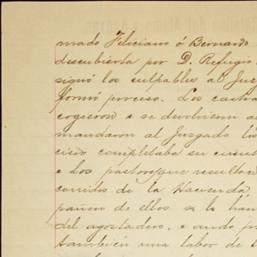 mado Feliciano ó Bernardo
descubierta por D. Refugio
signó los culpables al Juz
formó proceso. Los cuatro
cogieron a se devolvieron a
mandaron al Juzgado los
cinco completaba su
e los pastores que resultan
corridos de la Hacienda
pañan de ellos se la han
del agostadero, e ando p
también una labor de t